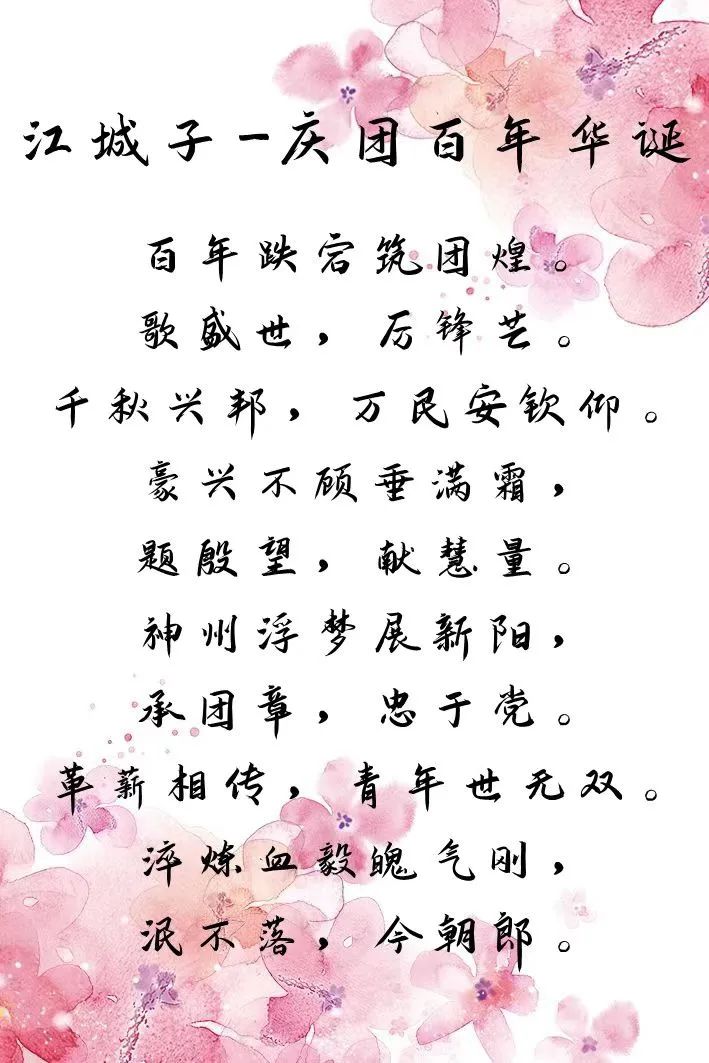 江城子-庆团百年华诞
百年跌宕筑团煌。
歌盛世，厉锋芒。
千秋兴邦，万民安钦仰。
豪兴不顾垂满霜，
题殷望，献慧量。
神州浮梦展新阳，
承团章，忠于党。
革薪相传，青年世无双。
淬炼血毅魄气刚，
泯不落，今朝郎。